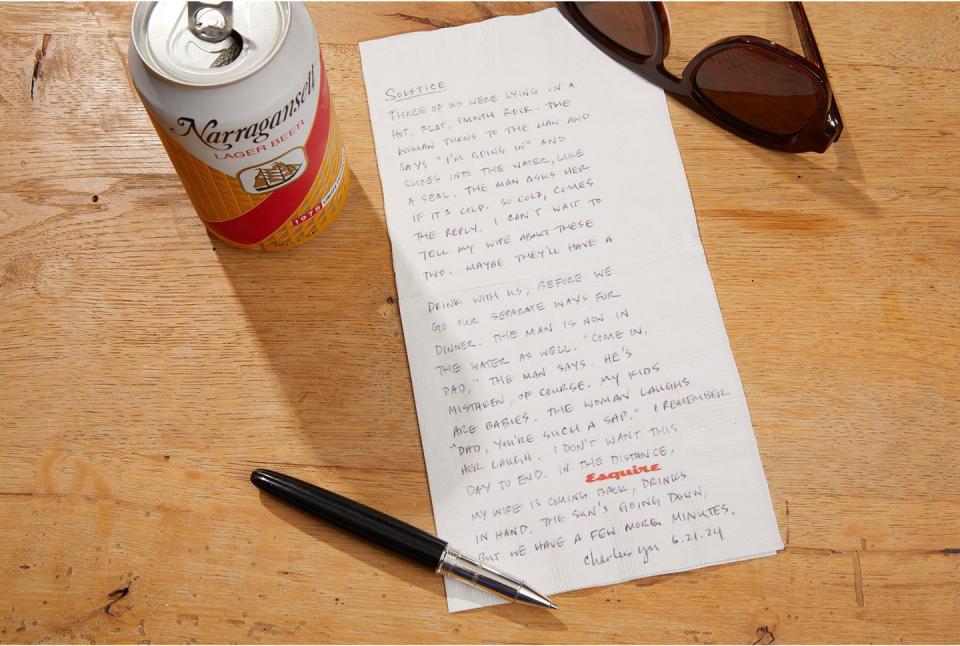 Narragansett
LAGER BEER
1975
SOLSTICE
THREE OF US WERE LYING ON A
HOT, FLAT, SMOOTH ROCK. THE
WOMAN TURNS TO THE MAN AND
SAYS "I'M GOING IN" AND
SLIDES INTO THE WATER, LIKE
A SEAL. THE MAN ASKS HER
IF IT'S COLD. SO COLD, COMES
THE REPLY. I CAN'T WAIT TO
TELL MY WIFE ABOUT THESE
TWO. MAYBE THEY'LL HAVE A
DRINK WITH US, BEFORE WE
GO OUR SEPARATE WAYS FOR
DINNER. THE MAN IS NOW IN
THE WATER AS WELL. "COME IN,
DAD," THE MAN SAYS. HE'S
MISTAKEN, OF COURSE. MY KIDS
ARE BABIES. THE WOMAN LAUGHS.
"DAD, YOU'RE SUCH A SAP." I REMEMBER
HER LAUGH. I DON'T WANT THIS
DAY TO END. IN THE DISTANCE,
Esquire
MY WIFE IS COMING BACK, DRINKS
IN HAND. THE SUN'S GOING DOWN,
BUT WE HAVE A FEW MORE MINUTES.
Charles Yu 6.21.24